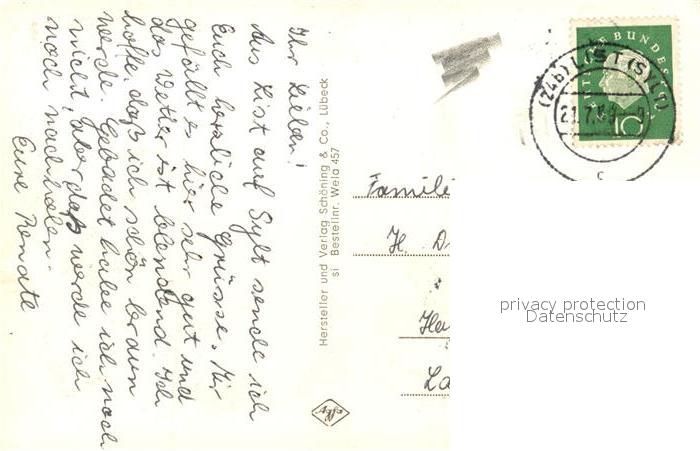 Ihr Lieben!
Aus List auf Sylt sende ich
Euch herzliche Grüsse. Mir
gefällt es hier sehr gut und
das Wetter ist blendend. Ich
hoffe, daß ich schön braun
werde. Gebadet habe ich noch
nicht, aber daß werde ich
noch nachholen.
Eure Renate
Hersteller und Verlag Schöning & Co., Lübeck
si Bestellnr. Wela 457
BUNDES
10
(24b) LIST (SYLT)
21.7.
c
Famili
H. D
He
La
privacy protection
Datenschutz